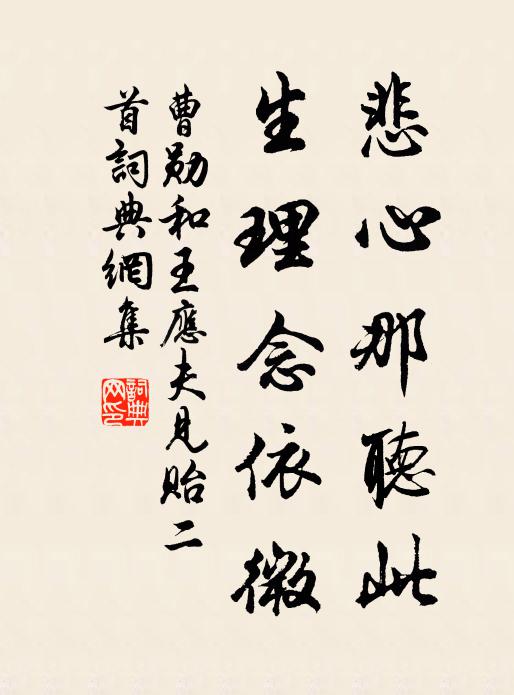 悲心那聽此
生理念依微
曹勛和王應夫見貽二
首詞典網集
詞典
网印